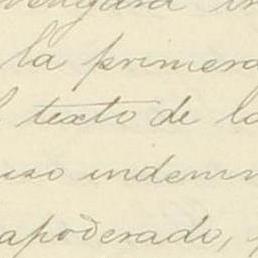 la primera
texto de la
uso indem
apoderado,